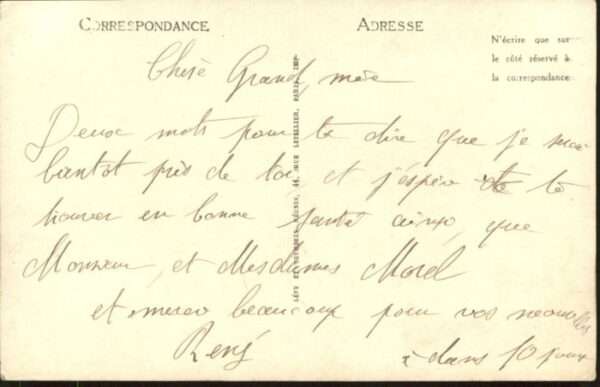 CORRESPONDANCE
ADRESSE
N'écrire que sur
le côté réservé à
la correspondance
Chère Grand mère
Deux mots pour te dire que je serai
bientôt près de toi et j'espère te
trouver en bonne santé ainsi que
Monsieur et Mesdames Morel
et merci beaucoup pour vos nouvelles
René
à dans 10 jours
LÉVY ET NEURDEIN RÉUNIS, 44, RUE LETELLIER, PARIS. IMP.